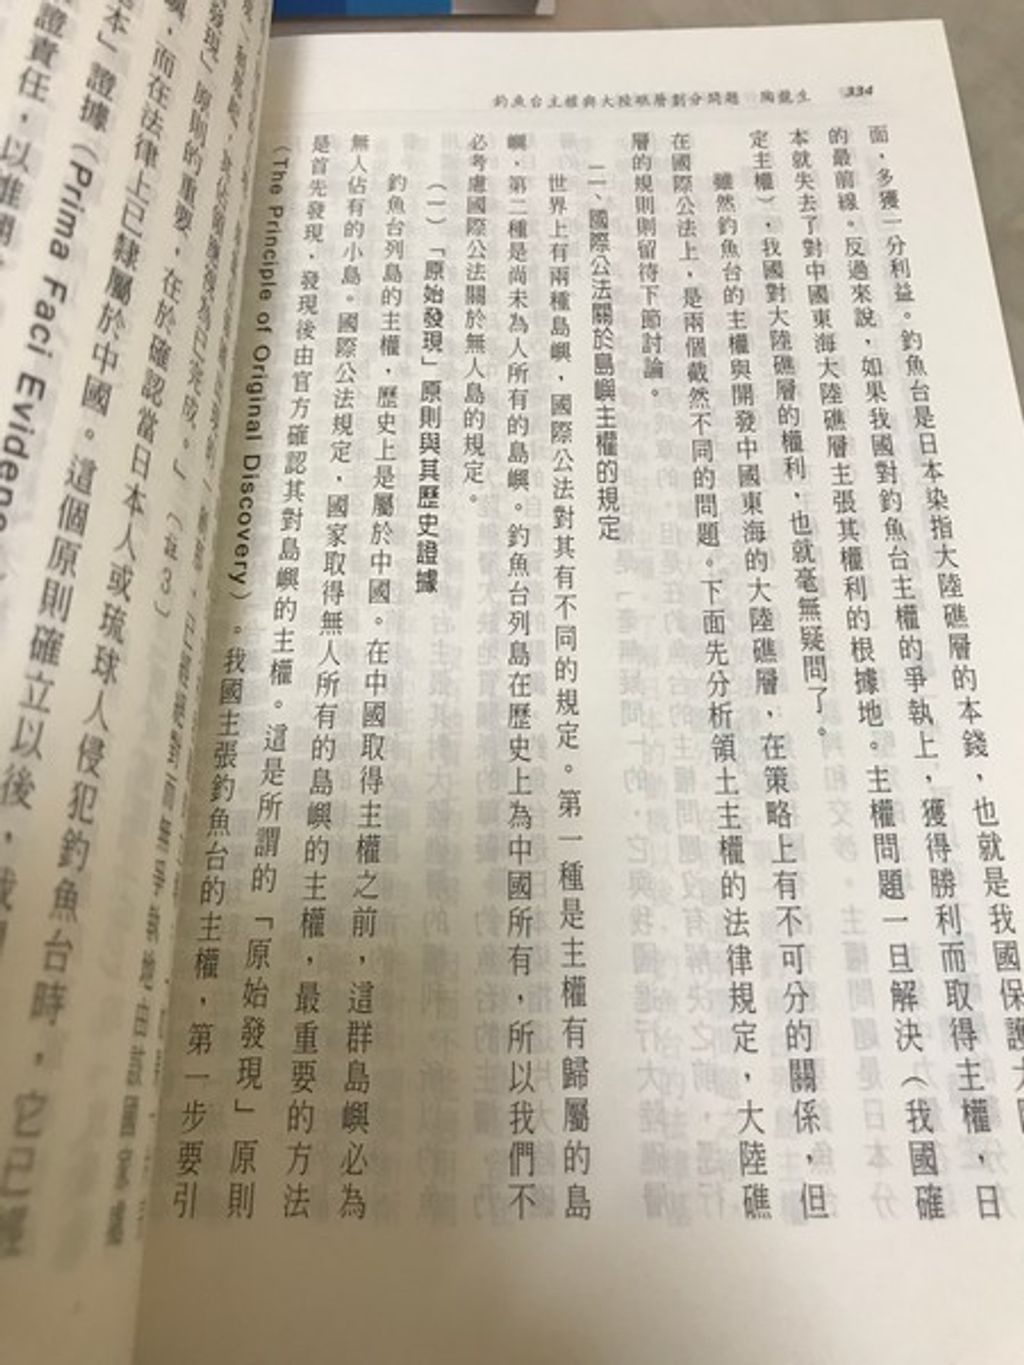 釣魚台主權與大陸礁層劃分問題 陶龍生 334
面，多獲一分利益。釣魚台是日本染指大陸礁層的本錢，也就是我國保護大
的最前線。反過來說，如果我國對釣魚台主權的爭執上，獲得勝利而取得主權，日
本就失去了對中國東海大陸礁層主張其權利的根據地。主權問題一旦解決（我國確
定主權），我國對大陸礁層的權利，也就毫無疑問了。
雖然釣魚台的主權與開發中國東海的大陸礁層，在策略上有不可分的關係，但
在國際公法上，是兩個截然不同的問題。下面先分析領土主權的法律規定，大陸礁
層的規則則留待下節討論。
二、國際公法關於島嶼主權的規定
世界上有兩種島嶼，國際公法對其有不同的規定。第一種是主權有歸屬的島
嶼，第二種是尚未為人所有的島嶼。釣魚台列島在歷史上為中國所有，所以我們不
必考慮國際公法關於無人島的規定。
（一）「原始發現」原則與其歷史證據
釣魚台列島的主權，歷史上是屬於中國。在中國取得主權之前，這群島嶼必為
無人佔有的小島。國際公法規定，國家取得無人所有的島嶼的主權，最重要的方法
是首先發現，發現後由官方確認其對島嶼的主權。這是所謂的「原始發現」原則
（The Principle of Original Discovery）。我國主張釣魚台的主權，第一步要引
為已完成。」（註3）
發現」原則的重要，在於確認當日本人或琉球人侵犯釣魚台時，它已經
，而在法律上已隸屬於中國。這個原則確立以後，我
本」證據（Prima Faci Evidenc
證責任，以推